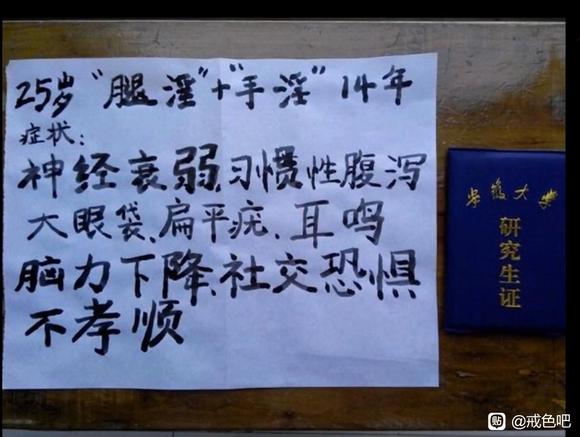 25岁 "腿淫"+"手淫" 14年
症状:
神经衰弱、习惯性腹泻
大眼袋、扁平疣、耳鸣
脑力下降、社交恐惧
不孝顺
安徽大学
研究生证
贴 @戒色吧